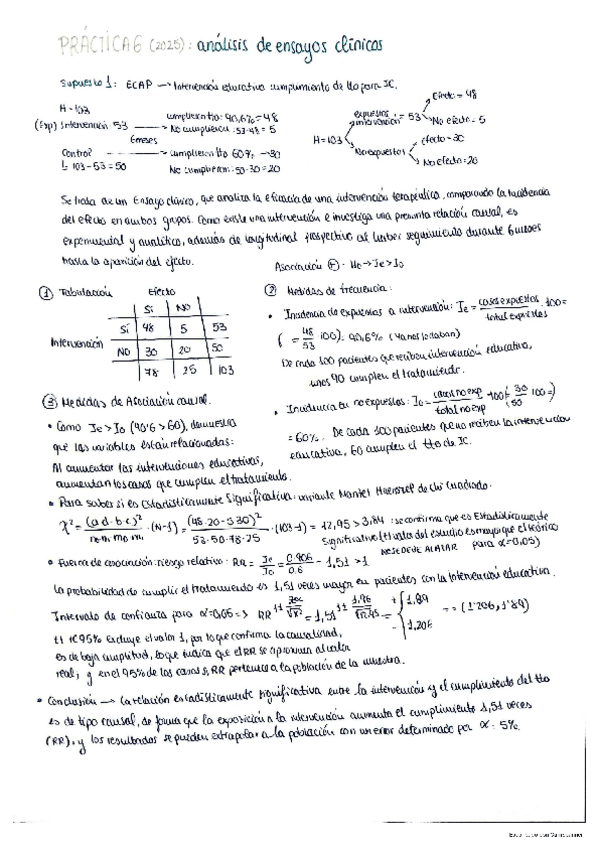 PRÁCTICA 6 (2025): análisis de ensayos clínicos
Supuesto 1: ECAP → Intervención educativa cumplimiento de tto para IC.
N=103
(Exp) Intervención: 53 → cumplimiento: 90,6% = 48
No cumplieron: 53-48 = 5
6 meses
Control?
↳ 103-53=50 → cumplimiento 60% → 30
No cumplieron: 50-30=20
N=103
expuestos intervención = 53
Efecto = 48
No efecto = 5
No expuestos
efecto = 30
No efecto = 20
Se trata de un Ensayo clínico, que analiza la eficacia de una intervención terapéutica, comparando la incidencia
del efecto en ambos grupos. Como existe una intervención e investiga una presunta relación causal, es
experimental y analítico, además de longitudinal prospectivo al haber seguimiento durante 6 meses
hasta la aparición del efecto.
Asociación ⊕ · H₀ → Ie > Io
① Tabulación
Efecto
SÍ NO
Intervención
SÍ 48 5 53
NO 30 20 50
78 25 103
② Medidas de frecuencia:
• Incidencia de expuestos a intervención: Ie = casos expuestos / total expuestos · 100 =
( = 48/53 · 100) = 90,6% (ya nos lo daban)
De cada 100 pacientes que reciben intervención educativa,
unos 90 cumplen el tratamiento.
• Incidencia en no expuestos: Io = casos no exp / total no exp · 100 (= 30/50 · 100 =)
= 60%. De cada 100 pacientes que no reciben la intervención
educativa, 60 cumplen el tto de IC.
③ Medidas de Asociación causal.
• Como Ie > Io (90'6 > 60), demuestra
que las variables están relacionadas:
Al aumentar las intervenciones educativas,
aumentan los casos que cumplen el tratamiento.
• Para saber si es Estadísticamente significativa: variante Mantel Haenszel de chi cuadrado.
χ² = (a·d - b·c)² / n₁·n₀·m₁·m₀ · (N-1) = (48·20-5·30)² / 53·50·78·25 · (103-1) = 12,95 > 3,84 : se confirma que es Estadísticamente
significativo (el valor del estudio es mayor que el teórico
para α=0,05)
• Fuerza de asociación: riesgo relativo: RR = Ie/Io = 0,906/0,6 = 1,51 > 1
La probabilidad de cumplir el tratamiento es 1,51 veces mayor en pacientes con la intervención educativa.
Intervalo de confianza para α=0,05 → RR^(1± Zα/√χ²) = 1,51^(1± 1,96/√12,95) = + 1,89 - 1,206 = (1'206, 1'89)
El IC95% excluye el valor 1, por lo que confirma la causalidad,
es de baja amplitud, lo que indica que el RR se aproxima al valor
real; y en el 95% de los casos el RR pertenece a la población de la muestra.
• Conclusión → La relación estadísticamente significativa entre la intervención y el cumplimiento del tto
es de tipo causal, de forma que la exposición a la intervención aumenta el cumplimiento 1,51 veces
(RR), y los resultados se pueden extrapolar a la población con un error determinado por α = 5%.